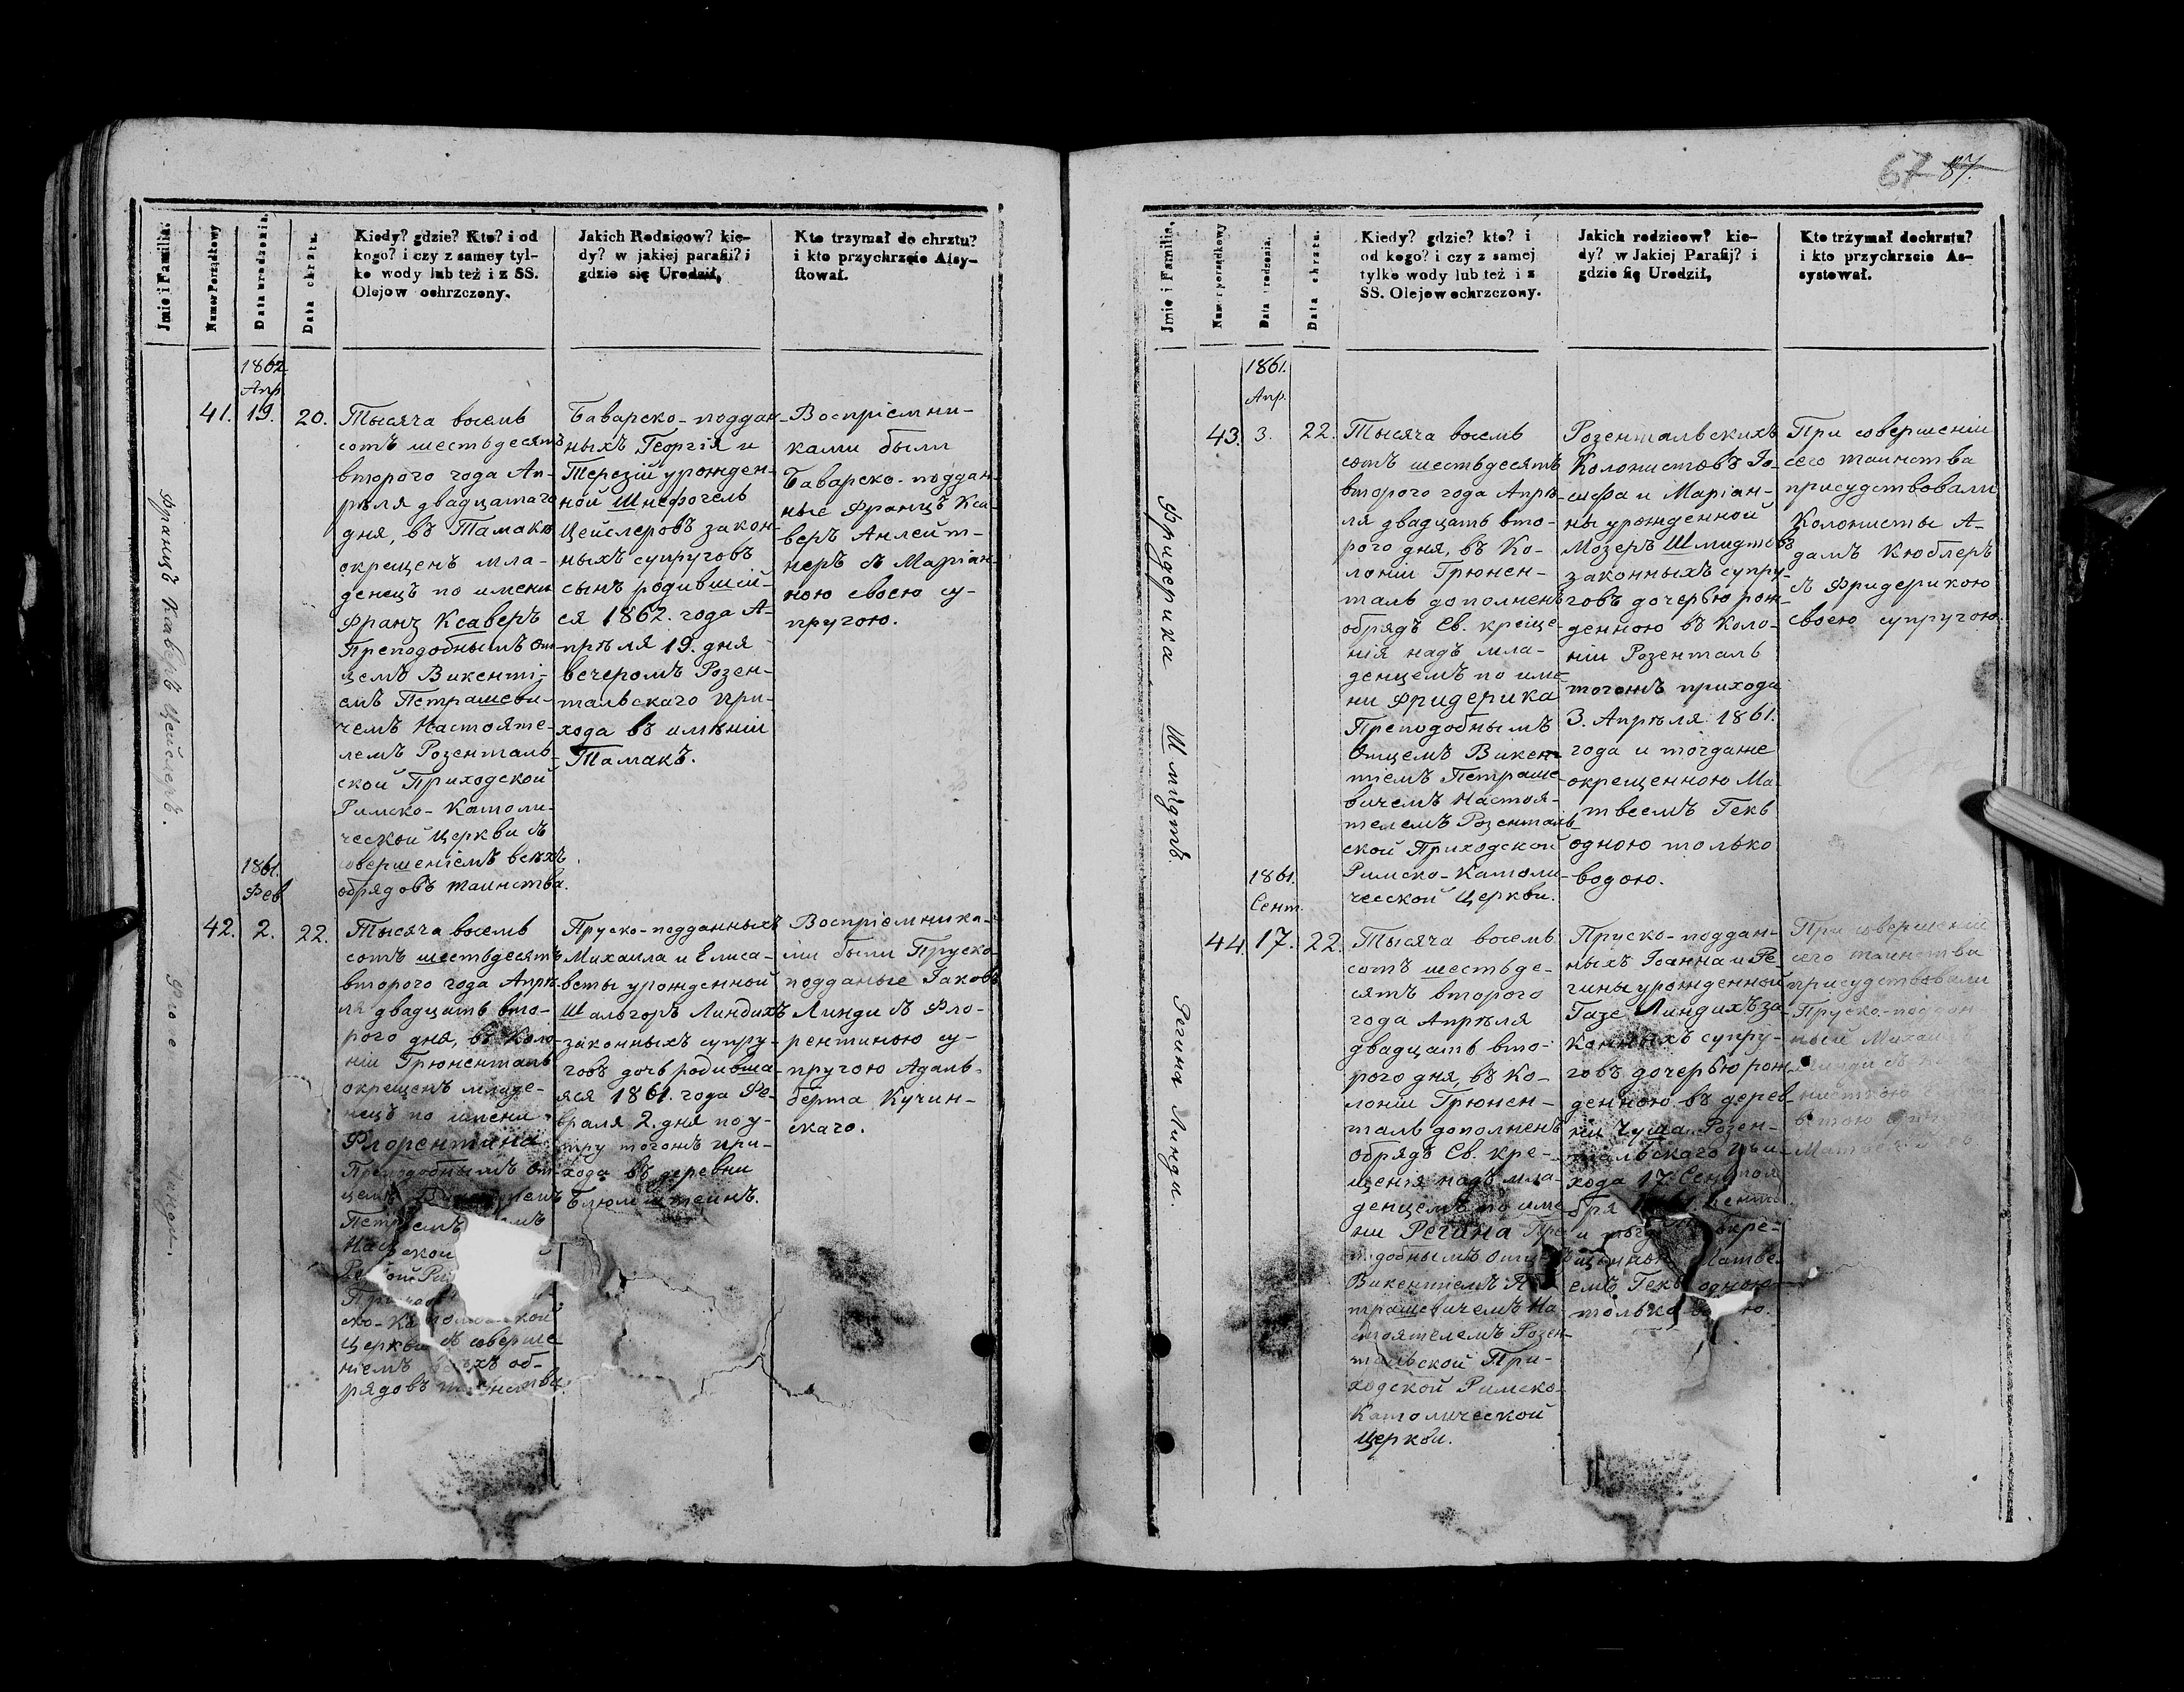 67 87.
Jmie i Familia.
Numer Porządkowy
Data urodzenia.
Data chrztu.
Kiedy? gdzie? Kto? i od
kogo? i czy z samey tyl-
ko wody lub też i z SS.
Olejow ochrzczony.
Jakich Rodzicow? kie-
dy? w jakiej parafii? i
gdzie się Urodził,
Kto trzymał do chrztu?
i kto przychrzcie Assy-
stował.
Францъ Ксаверъ Цейслеръ.
1862.
Апр.
41. 19. 20.
Тысяча восемь
сотъ шестьдесятъ
второго года Ап-
рѣля двадцатаго
дня, въ Тамакѣ
окрещенъ мла-
денецъ по имени
Франц Ксаверъ
Преподобнымъ От-
цемъ Викенті-
емъ Петрашеви-
чемъ Настояте-
лемъ Розенталь-
ской Приходской
Римско-Католи-
ческой Церкви съ
совершеніемъ всѣхъ
обрядовъ таинства.
Баварско-поддан-
ныхъ Георгія и
Терезіи урожден-
ной Шнефогель
Цейслеровъ закон-
ныхъ супруговъ
сынъ родившій-
ся 1862. года А-
прѣля 19. дня
вечеромъ Розен-
тальскаго при-
хода въ имѣніи
Тамакъ.
Воспріемни-
ками были
Баварско-поддан-
ные Францъ Кса-
веръ Анлейт-
неръ съ Маріан-
ною своею су-
пругою.
1861.
Фев
42. 2. 22.
Тысяча восемь
сотъ шестьдесятъ
второго года Апрѣ-
ля двадцать вто-
рого дня, въ Коло-
ніи Грюненталь
окрещенъ младе-
нецъ по имени
Флорентина
Преподобнымъ От-
цемъ
Церкви съ соверше
ніемъ всѣхъ об-
рядовъ таинства.
Пруско-подданныхъ
Михаила и Елиса-
веты урожденной
Шальгоръ Линдихъ
законныхъ супру-
говъ дочь родивша-
яся 1861. года Фе-
враля 2. дня поу-
тру тогожъ при-
хода въ деревни
Блюмштейнъ.
Воспріемника-
ми были Пруско-
подданые Іаковъ
Линди съ Фло-
рентиною су-
пругою Адаль-
берта Кучин-
скаго.
Jmie i Familia.
Numer porządkowy
Data urodzenia.
Data chrztu.
Kiedy? gdzie? kto? i
od kogo? i czy z samej
tylko wody lub też i z
SS. Olejow ochrzczony.
Jakich rodzicow? kie-
dy? w Jakiej Parafij? i
gdzie się Urodził,
Kto trzymał dochrztu?
i kto przychrzcie As-
systował.
Фридерика Шмидтъ.
1861.
Апр.
43. 3. 22.
Тысяча восемь
сотъ шестьдесятъ
второго года Апрѣ-
ля двадцать вто-
рого дня, въ Ко-
лоніи Грюнен-
таль дополненъ
обрядъ Св. креще-
нія надъ мла-
денцемъ по име-
ни Фридерика
Преподобнымъ
Отцемъ Викен-
тіемъ Петраше-
вичемъ Настоя-
телемъ Розенталь-
ской Приходской
Римско-Католи-
ческой Церкви.
Розентальскихъ
Колонистовъ Іо-
сифа и Маріан-
ны урожденной
Мозеръ Шмидтовъ
законныхъ супру-
говъ дочерью рож-
денною въ Коло-
ніи Розенталь
тогожъ прихода
3. Апрѣля 1861.
года и тогдаже
окрещенною Ма-
твеемъ Гекъ
одною только
водою.
При совершеніи
сего таинства
присудствовали
Колонисты А-
дамъ Кюблеръ
съ Фридерикою
своею супругою.
Регина Линди.
1861.
Сент.
44. 17. 22.
Тысяча восемь
сотъ шестьде-
сятъ второго
года Апрѣля
двадцать вто-
рого дня, въ Ко-
лоніи Грюнен-
таль дополненъ
обрядъ Св. кре-
щенія надъ мла-
денцемъ по име-
ни Регина Пре-
подобнымъ Отце
Викентіемъ Пе-
трашевичемъ На-
стоятелемъ Розен-
тальской При-
ходской Римско-
Католической
Церкви.
Пруско-поддан-
ныхъ Іоанна и Ре-
гины урожденной
Газе Линдихъ за-
конныхъ супру-
говъ дочерью рож-
денною въ дерев-
ни Чуша Розен-
тальскаго при-
хода 17. Сентя
бря
и окре-
щенною Матве-
емъ Гекъ одною
только
При совершеніи
сего таинства
присудствовали
Пруско-поддан
ный Михаи
Линди съ